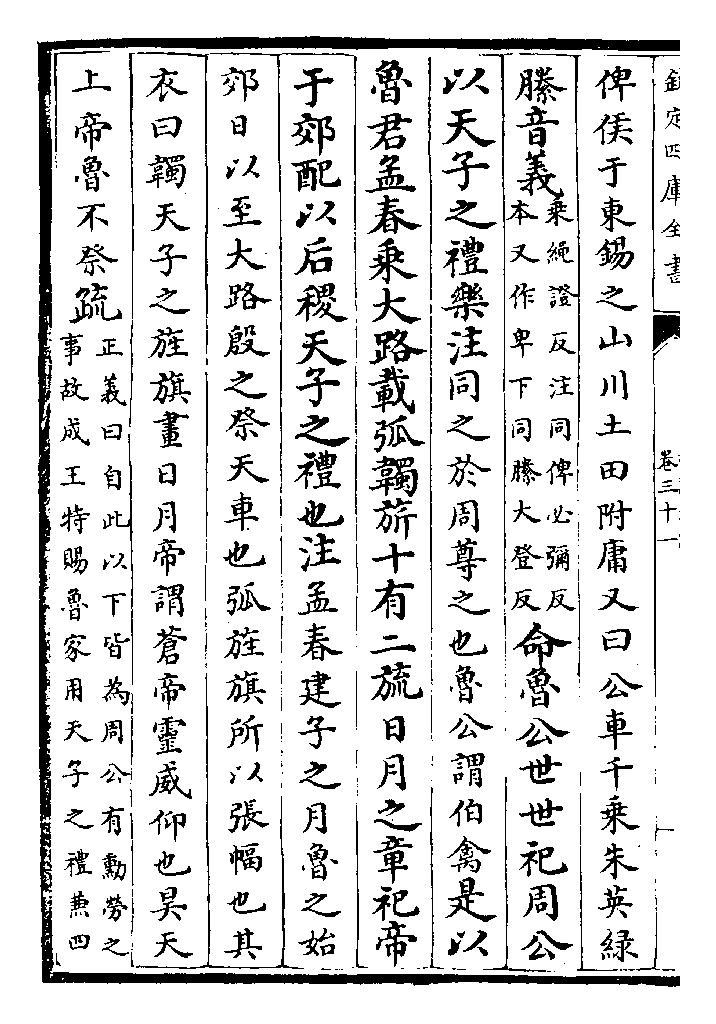 欽定四庫全書
卷三十一
俾侯于東錫之山川土田附庸又曰公車千乘朱英緑
縢音義乗繩證反注同俾必彌反
本又作卑下同縢大登反命魯公世世祀周公
以天子之禮樂注同之於周尊之也魯公謂伯禽是以
魯君孟春乗大路載弧韣旂十有二旒日月之章祀帝
于郊配以后稷天子之禮也注孟春建子之月魯之始
郊日以至大路殷之祭天車也弧旌旗所以張幅也其
衣曰韣天子之旌旗畫日月帝謂蒼帝靈威仰也昊天
上帝魯不祭疏正義曰自此以下皆為周公有勲勞之
事故成王特賜魯家用天子之禮兼四